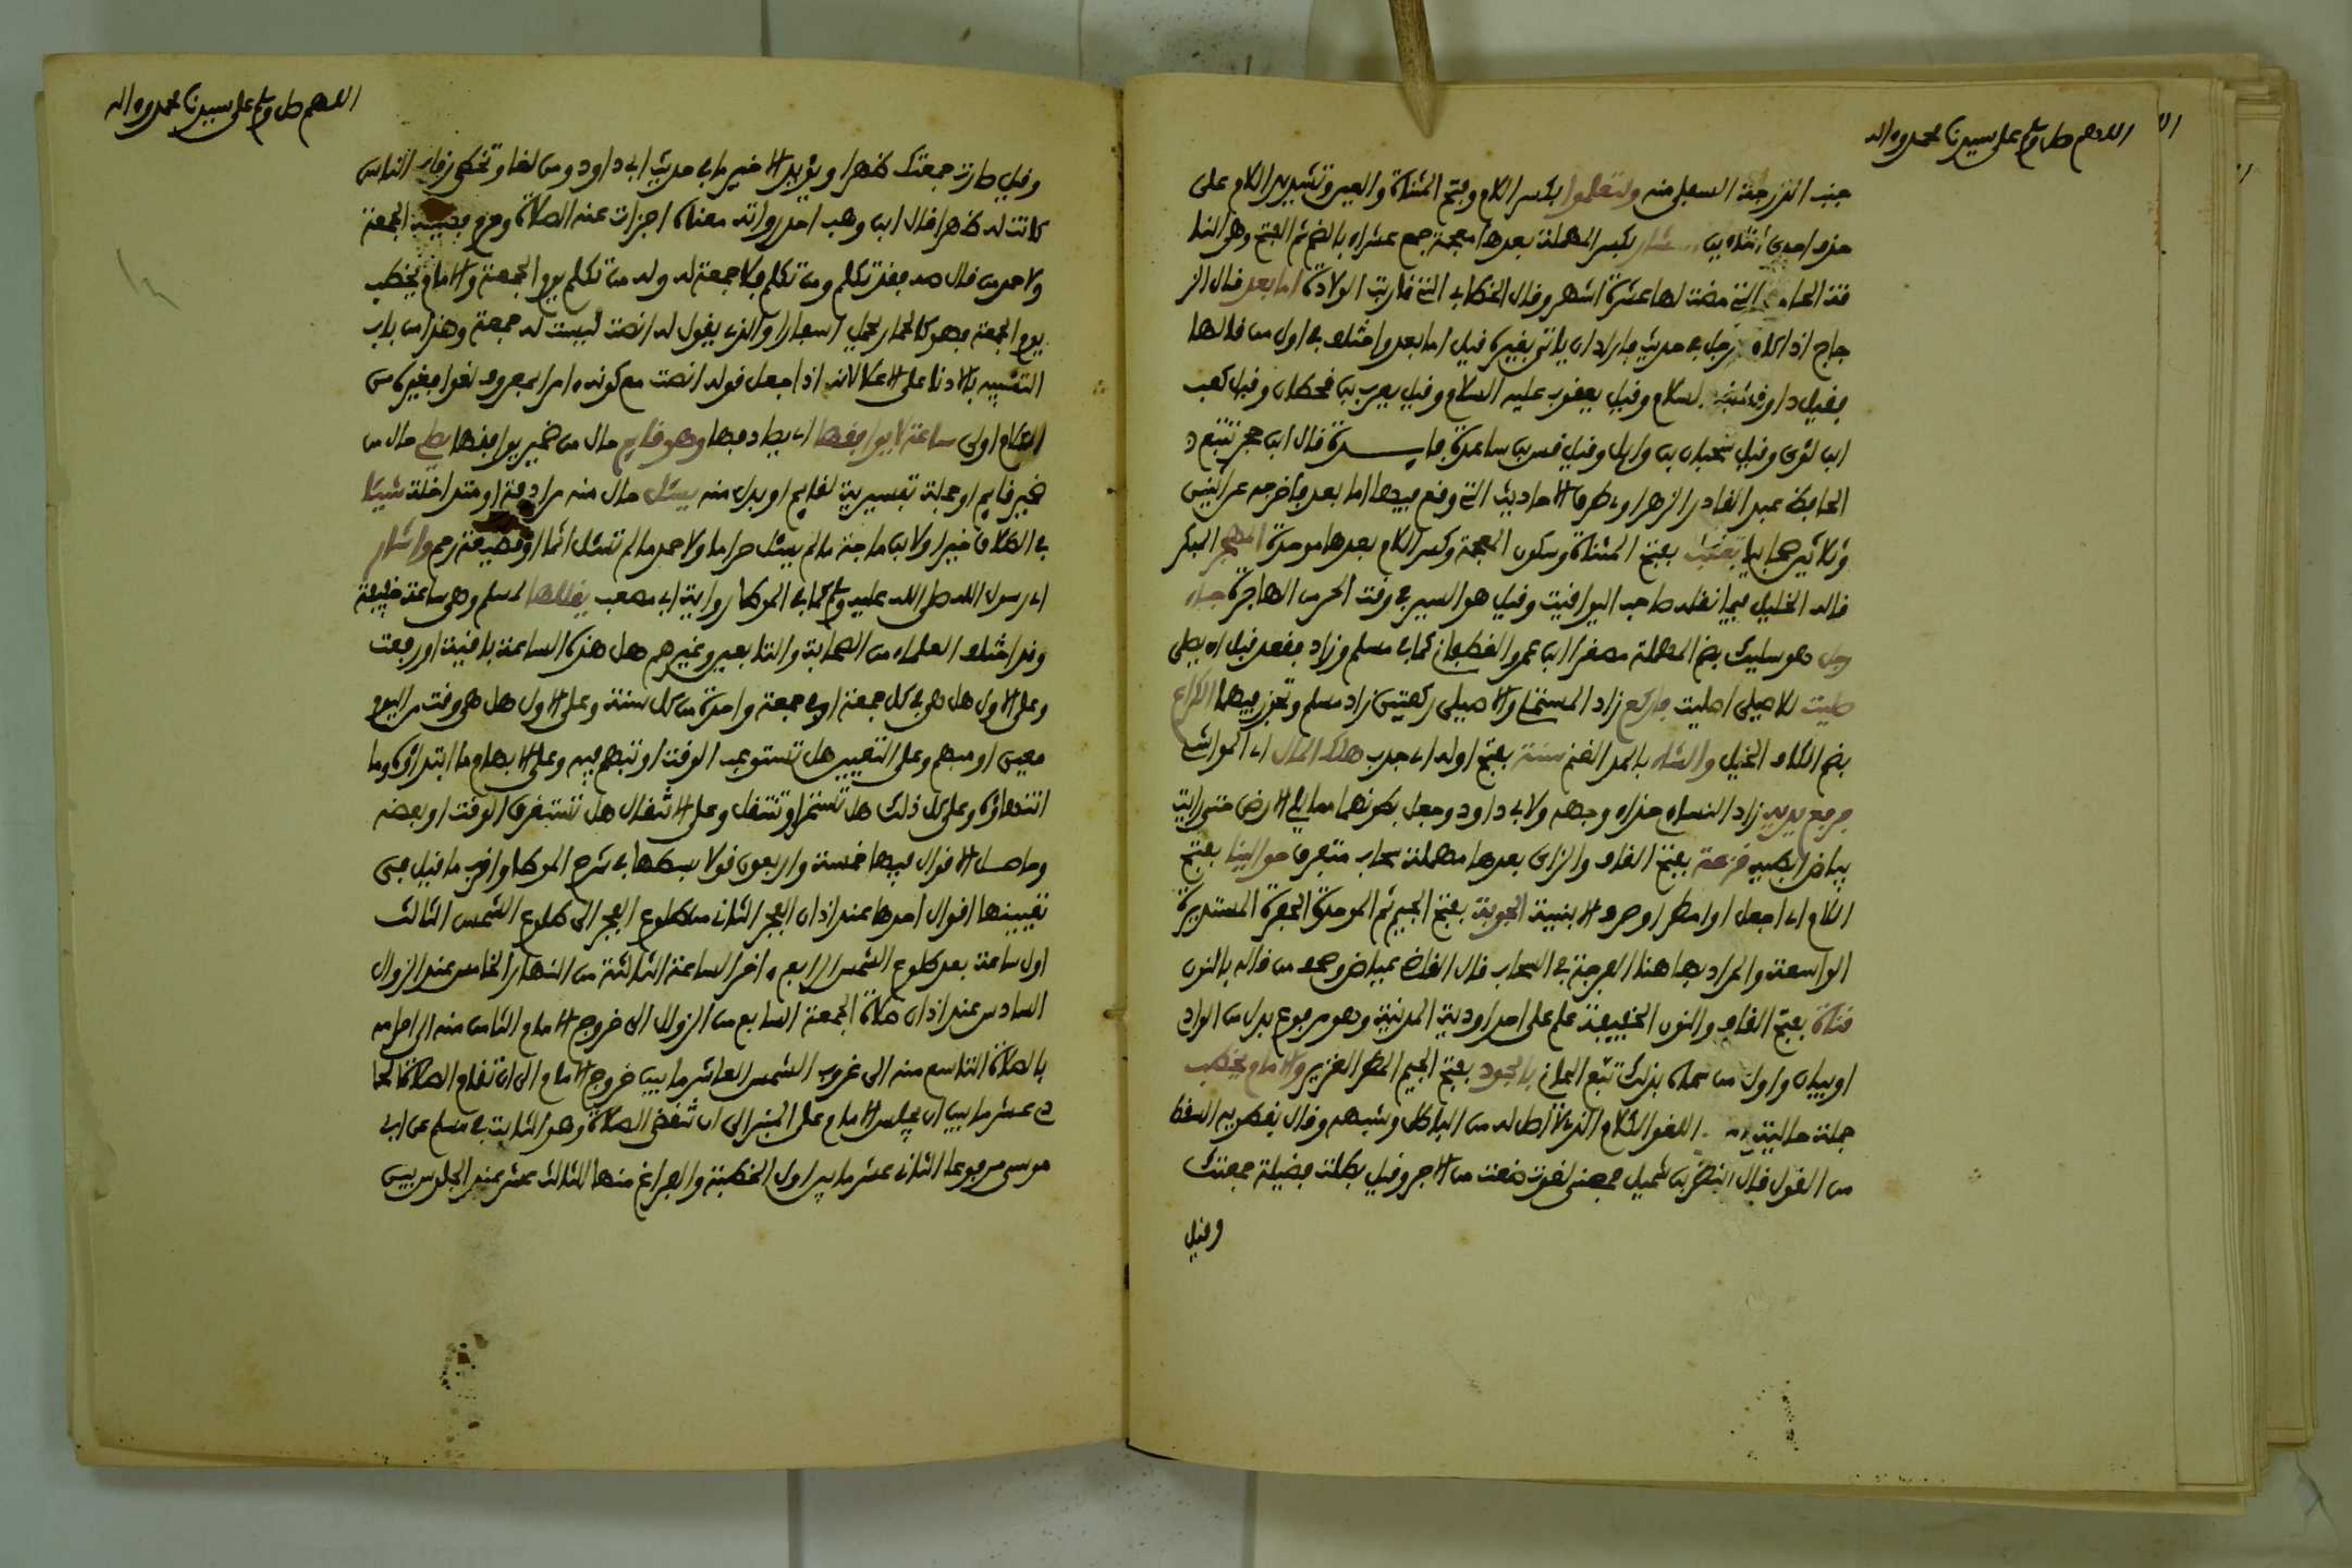 اللهم صل وسلم على سيدنا محمد وءاله
جنب الدرجة السفلى منه ولتعلموا بكسر اللام وفتح المثناة والعين وتشديد اللام على
حذف احدى بكسر المهملة بعدها معجمة جمع عشراء بالضم ثم الفتح وهي النا
قة الحامل التي مضت لها عشرة اشهر وقال الخطابي التي قاربت الولادة اما بعد قال الز
جاج اذا كان رجل في حديث فاراد ان ياتي بغيره قيل اما بعد واختلف في اول من قالها
فقيل داود عليه السلام وقيل يعقوب عليه السلام وقيل يعرب بن قحطان وقيل كعب
ابن لؤي وقيل سحبان بن وايل وقيل قس بن ساعدة فايدة قال ابن حجر تتبع د
الحافظ عبد القادر الرهاوي طرق الاحاديث التي وقع فيها اما بعد فاخرجه عن اثنين
وثلاثين صحابيا بفتح المثناة وسكون المعجمة وكسر اللام بعدها موحدة المهجر المبكر
قاله الخليل فيما نقله صاحب اليواقيت وقيل هو السير في وقت الحر من الهاجرة جاء
رجل هو سليك بضم المهملة مصغرا ابن عمرو الغطفاني كما في مسلم وزاد فقعد قبل ان يصلي
صليت للاصيلي اصليت فاركع زاد المستملي والاصيلي ركعتين زاد مسلم وتجوز فيهما الكراع
بضم الكاف الخيل والشاء بالمد الغنم سنة بفتح اوله اي جدب هلك المال اي المواشي
فرفع يديه زاد النساي حذاء وجهه ولابي داود وجعل بطونهما مما يلي الارض حتى رايت
بياض ابطيه قزعة بفتح القاف والزاي بعدها مهملة سحاب متفرق حوالينا بفتح
اللام اي اجعل او امطر او صرف الابنية الجوبة بفتح الجيم ثم الموحدة الحفرة المستديرة
الواسعة والمراد بها هنا الفرجة في السحاب قال القاضي عياض وصحف من قاله بالنون
قناة بفتح القاف والنون الخفيفة علم على احد اودية المدينة وهو مرفوع بدل من الوادي
او بيان واول من سماه بذلك تبع اليماني بالجود بفتح الجيم المطر الغزير والامام يخطب
جملة حالية اللغو الكلام الذي لا اصل له من الباطل وشبهه وقال يفطويه السقط
من القول قال النضر بن شميل معنى لغوت خبت من الاجر وقيل بطلت فضيلة جمعتك
وقيل
اللهم صل وسلم على سيدنا محمد وءاله
وقيل صارت جمعتك ظهرا ويؤيد الاخير ما في حديث ابي داود ومن لغا وتخطى رقاب الناس
كانت له ظهرا قال ابن وهب احد رواته معناه اجزات عنه الصلاة وحرم فضيلة الجمعة
ولاحمد من قال صه فقد تكلم ومن تكلم فلا جمعة له وله من تكلم يوم الجمعة والامام يخطب
يوم الجمعة فهو كالحمار يحمل اسفارا والذي يقول له انصت ليست له جمعة وهذا من باب
التنبيه بالادنا على الاعلا لانه اذا جعل قوله انصت مع كونه ءامرا بمعروف لغوا فغيره من
الكلام اولى ساعة لا يوافقها اي يصادفها وهو قايم حال من ضمير يوافقها يصلي حال من
ضمير قايم او جملة تفسيرية لقايم او بدل منه يسئل حال منه مرادفة او متداخلة شيئا
في الطلاق خيرا ولابن ماجة ما لم يسئل حراما ولاحمد ما لم تسئل اثما او قطيعة رحم واشار
اي رسول الله صلى الله عليه وسلم كما في الموطا رواية ابي مصعب يقللها لمسلم وهي ساعة خفيفة
وقد اختلف العلماء من الصحابة والتابعين وغيرهم هل هذه الساعة باقية او رفعت
وعلى الاول هل هي في كل جمعة او في جمعة واحدة من كل سنة وعلى الاول هل هي وقت من اليوم
معين او مبهم وعلى التعيين هل تستوعب الوقت او تبهم فيه وعلى الابهام ما ابتداؤه وما
انتهاؤه وعلى كل ذلك هل تستمر او تنتقل وعلى الانتقال هل تستغرق الوقت او بعضه
وحاصل الاقوال فيها خمسة واربعون قولا بسطها في شرح الموطا واقرب ما قيل في
تعيينها اقوال احدها عند اذان الفجر الثاني من طلوع الفجر الى طلوع الشمس الثالث
اول ساعة بعد طلوع الشمس الرابع ءاخر الساعة الثالثة من النهار الخامس عند الزوال
السادس عند اذان صلاة الجمعة السابع من الزوال الى خروج الامام الثامن منه الى احرامه
بالصلاة التاسع منه الى غروب الشمس العاشر ما بين خروج الامام الى ان تقام الصلاة الحا
دي عشر ما بين ان يجلس الامام على المنبر الى ان تنقضي الصلاة وهو الثابت في مسلم عن ابي
موسى مرفوعا الثاني عشر ما بين اول الخطبة والفراغ منها الثالث عشر عند الجلوس بين